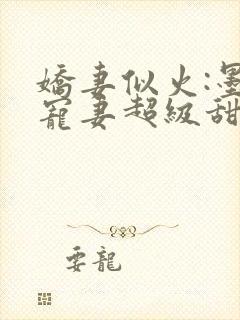 嬌妻似火:墨
寵妻超級甜
耍龍